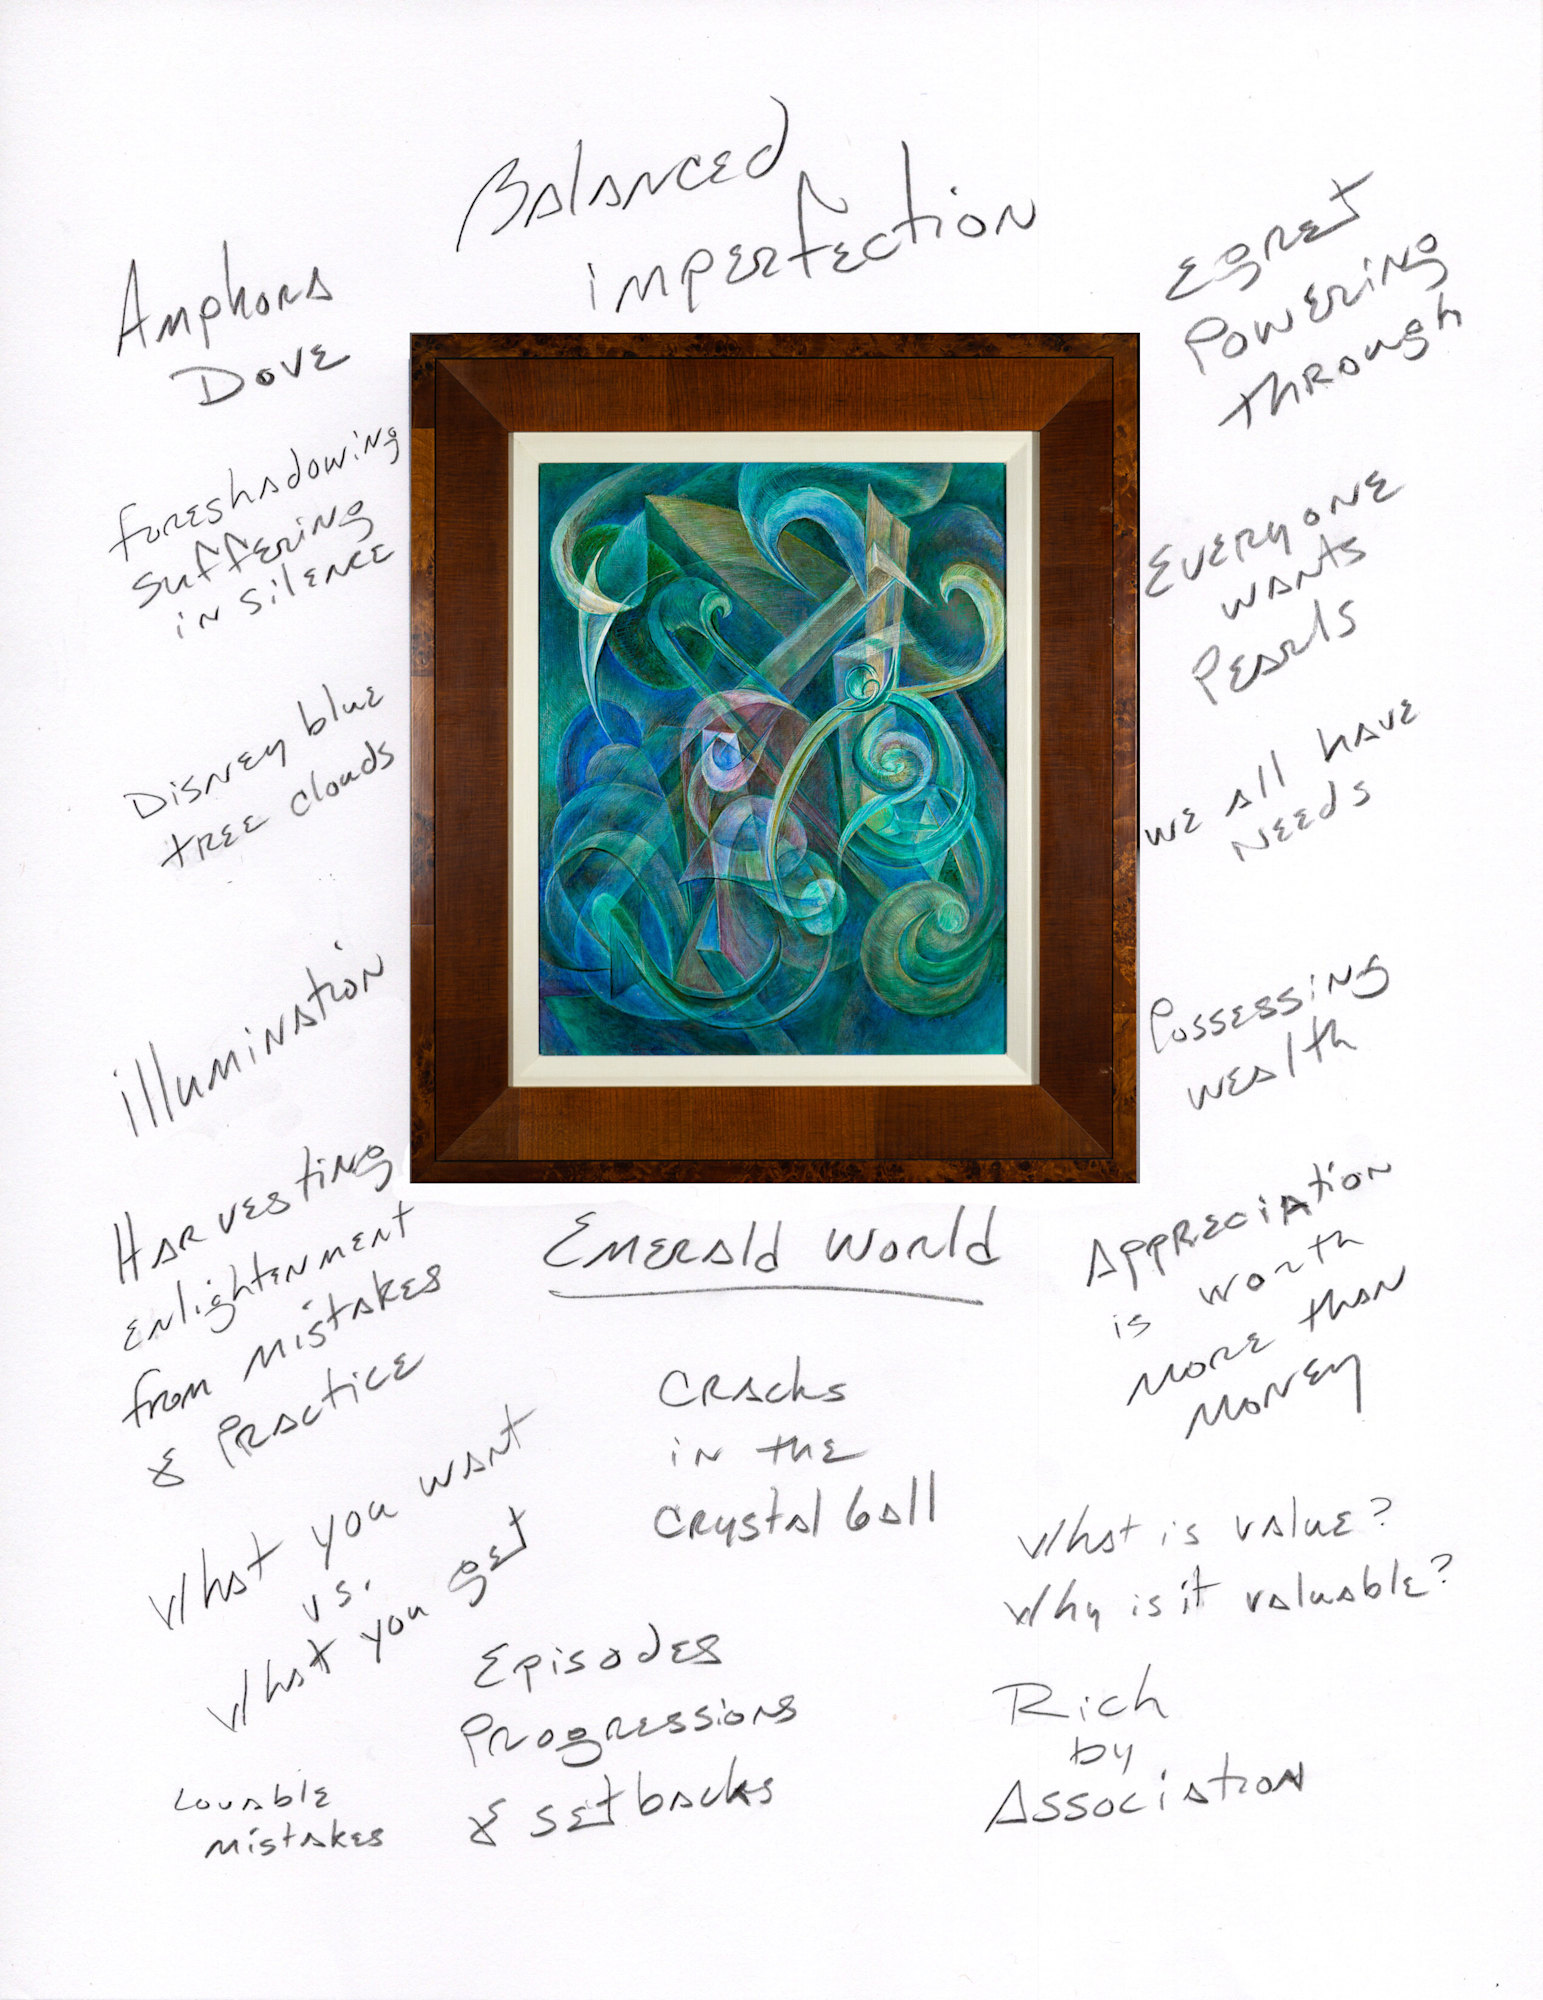 Balanced
imperfection
Amphora
Dove
foreshadowing
suffering
in silence
Disney blue
tree clouds
illumination
Harvesting
enlightenment
from mistakes
& Practice
What you want
vs.
What you get
Lovable
mistakes
Egret
Powering
through
Everyone
wants
Pearls
we all have
needs
Possessing
wealth
Appreciation
is worth
more than
money
Emerald World
Cracks
in the
Crystal ball
Episodes
Progressions
& setbacks
What is value?
Why is it valuable?
Rich
by
Association